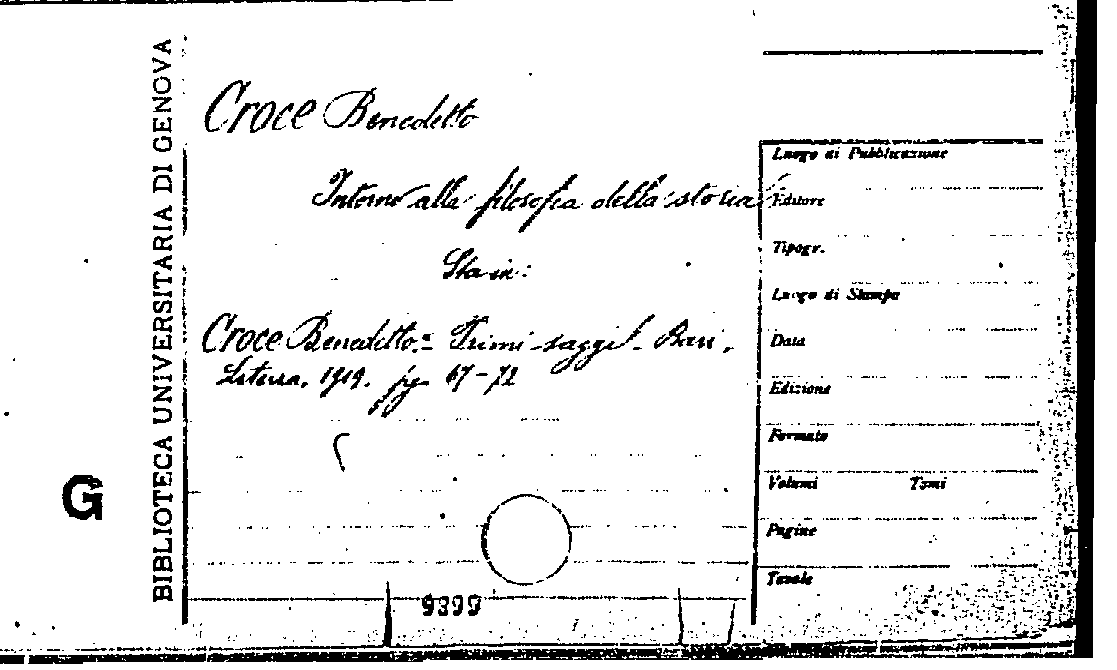 BIBLIOTECA UNIVERSITARIA DI GENOVA
G
Croce Benedetto
Intorno alla filosofia della storia
Sta in:
Croce Benedetto.= Primi saggi - Bari,
Laterza, 1919. pg. 67-72
9399
Luogo di Pubblicazione
Editore
Tipogr.
Luogo di Stampa
Data
Edizione
Formato
Volumi Tomi
Pagine
Tavole